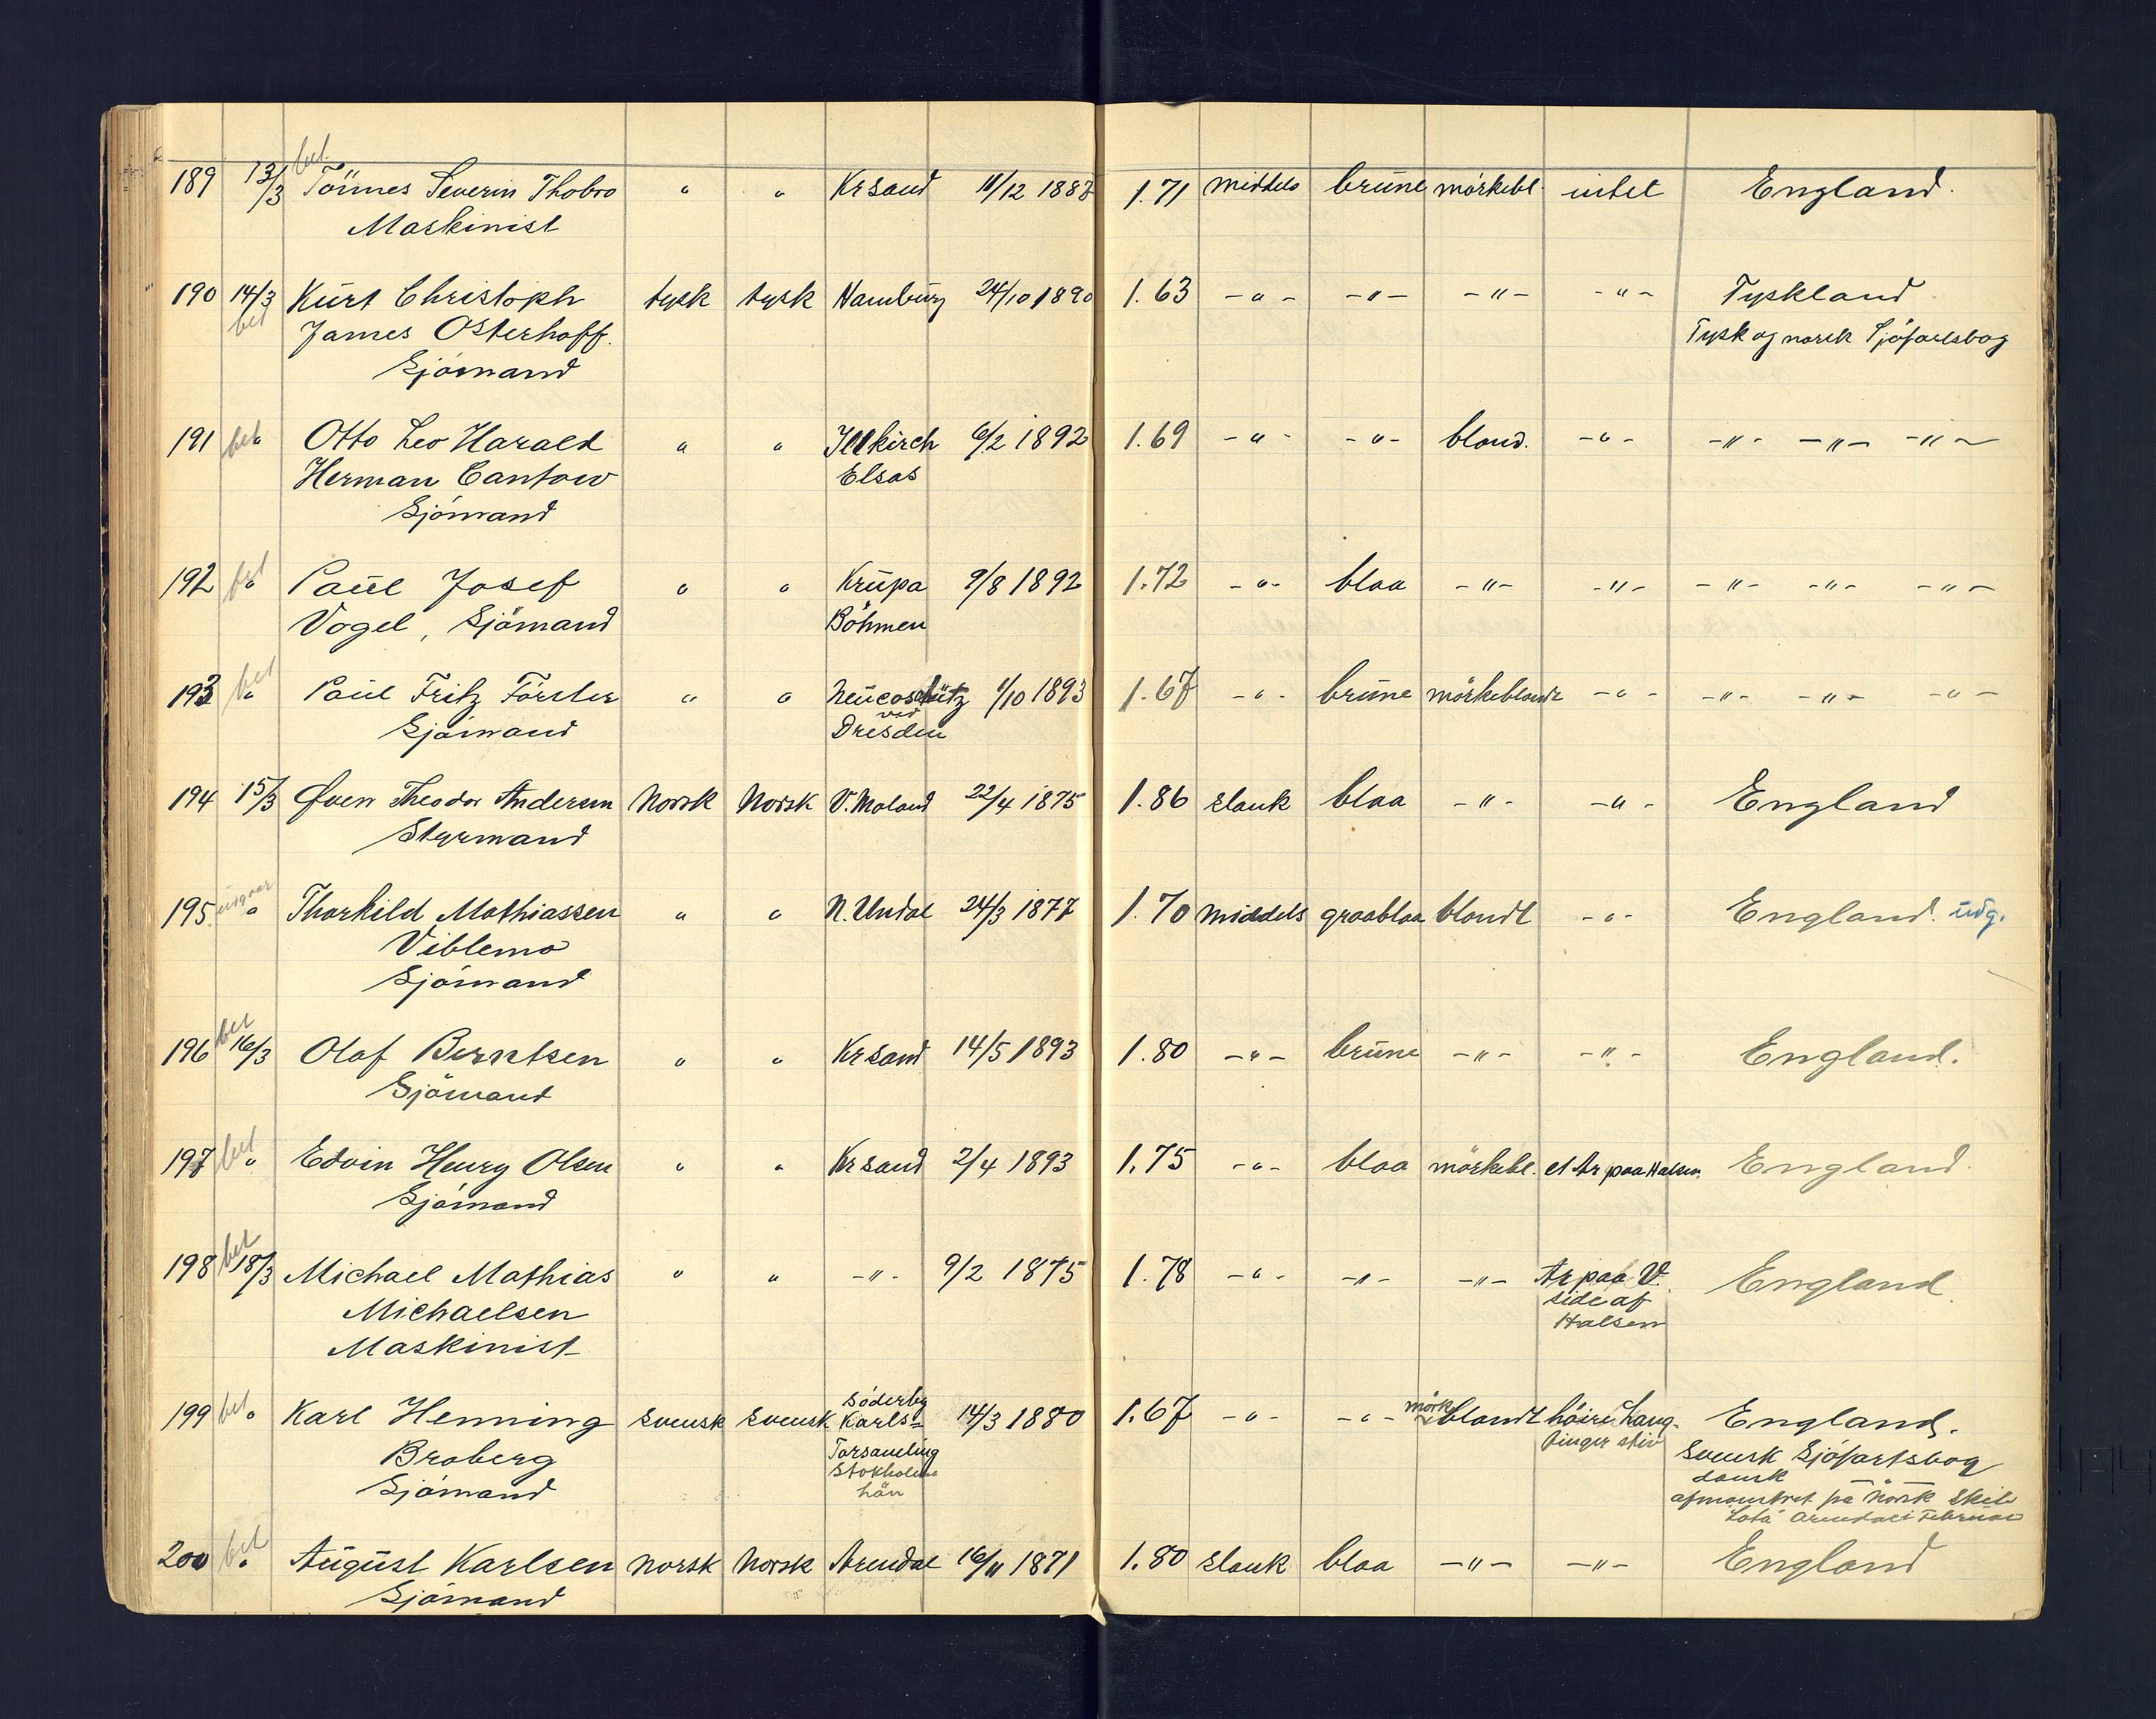 bet
189 13/3 Tönnes Severin Thobro " " Krsand 11/12 1887 1.71 middels brüne mörkebl. intet England.
Maskinist
190 14/3 Kürt Christoph tysk tysk Hambürg 24/10 1890 1.63 -"- -"- -"- -"- Tyskland
bet James Osterhoff. Tysk og norsk Sjöfartsbog
Sjömand
191 bet " Otto Leo Harald " " Illkirch 6/2 1892 1.69 -"- -"- blond. -"- -"- -"- -"-
Herman Cantow Elsas
Sjömand
192 bet " Paül Josef " " Krüpa 9/8 1892 1.72 -"- blaa -"- -"- -"- -"- -"-
Vogel, Sjömand Böhmen
193 bet " Paül Fritz Förster " " Neücoschütz 1/10 1893 1.67 -"- brüne mörkeblondt -"- -"- -"- -"-
Sjömand ved
Dresden
194 15/3 Sven Theodor Andersen Norsk Norsk V. Moland 22/4 1875 1.86 slank blaa -"- -"- England
Styrmand
195 üdgaar " Thorkild Mathiassen " " N. Undal 24/3 1877 1.70 middels graablaa blondt -"- England. üdg.
Viblemo
Sjömand
bet
196 16/3 Olaf Berntsen " " Krsand 14/5 1893 1.80 -"- brüne -"- -"- England.
Sjömand
197 bet " Edvin Henry Olsen " " Krsand 2/4 1893 1.75 -"- blaa mörkebl. et Ar paa Halsen. England.
Sjömand
bet
198 18/3 Michael Mathias " " -"- 9/2 1875 1.78 -"- -"- -"- Ar paa V. England
Michaelsen side af
Maskinist Halsen
199 bet " Karl Henning svensk svensk Söderby Karls= 14/3 1880 1.67 -"- -"- mörkblondt höire Lang- England.
Broberg Forsamling finger stiv Svensk Sjöfartsbog
Sjömand Stokholms dansk
län afmönstret på Norsk Skib
Arendal i Februar
200 bet " Aügüst Karlsen norsk Norsk Arendal 16/11 1871 1.80 slank blaa -"- -"- England
Sjömand